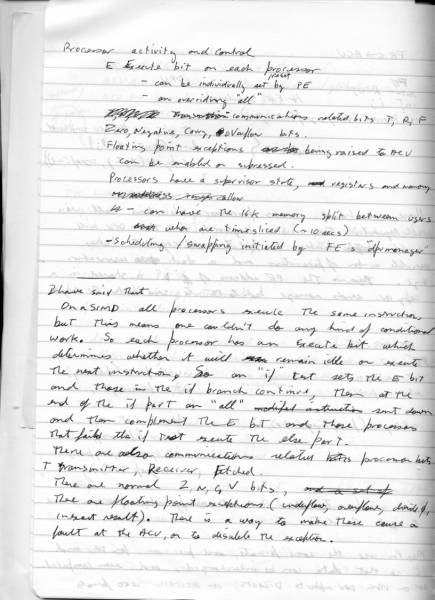 Processor activity and control
E Execute bit on each processor
- can be individually set by PE
- an overriding "all"
communications related bits T, R, F
Zero, Negative, Carry, Overflow bits.
Floating point exceptions being raised to ACU
can be enabled or supressed.
Processors have a supervisor state, registers and memory
- can have the 16K memory split between users
when are timesliced (~10 secs)
- scheduling / swapping initiated by FE's "dpumanager"
I have said that
On a SIMD all processors execute the same instruction
but this means one couldn't do any kind of conditional
work. So each processor has an Execute bit which
determines whether it will remain idle or execute
the next instruction. So an "if" test sets the E bit
and those in the if branch continue, then at the
end of the if part an "all" sent down
and then complement the E bit and those processors
that failed the if test execute the else part.
There are also communications related processor bits
T Transmitter, Receiver, Fetched.
There are normal Z, N, C, V bits,
There are floating point exceptions (underflow, overflow, divide 0,
inexact result). There is a way to make these cause a
fault at the ACU, or to disable the exception.